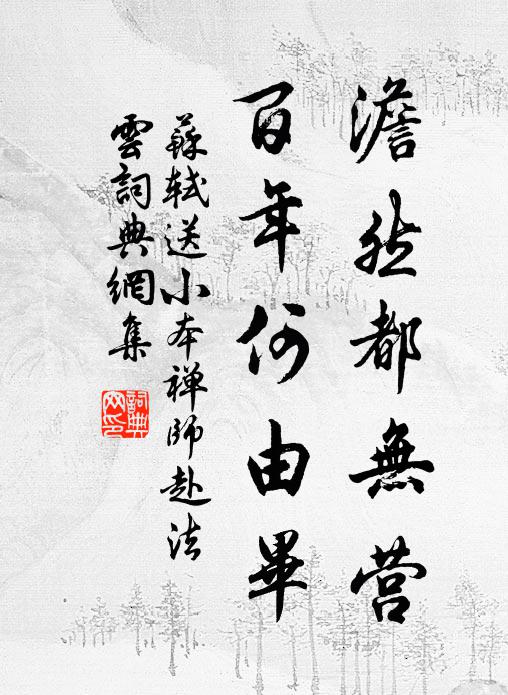 澹然都無营
百年何由畢
蘇軾送小本禅師赴法
雲詞典網集
詞典网印